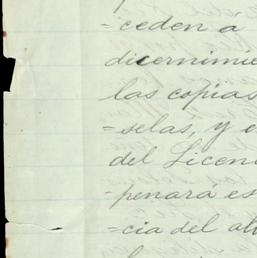 =ceden a
dicernimie
las copias
=selas, y e
del Licen
penará es
=cia del al